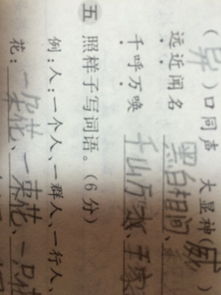 (异)口同声 大显神(威)
远近闻名 黑白相间、
千呼万唤 千山万
五 照样子写词语。(6分)
例:人:一个人、一群人、一行人、
花:一朵花、一束花、一